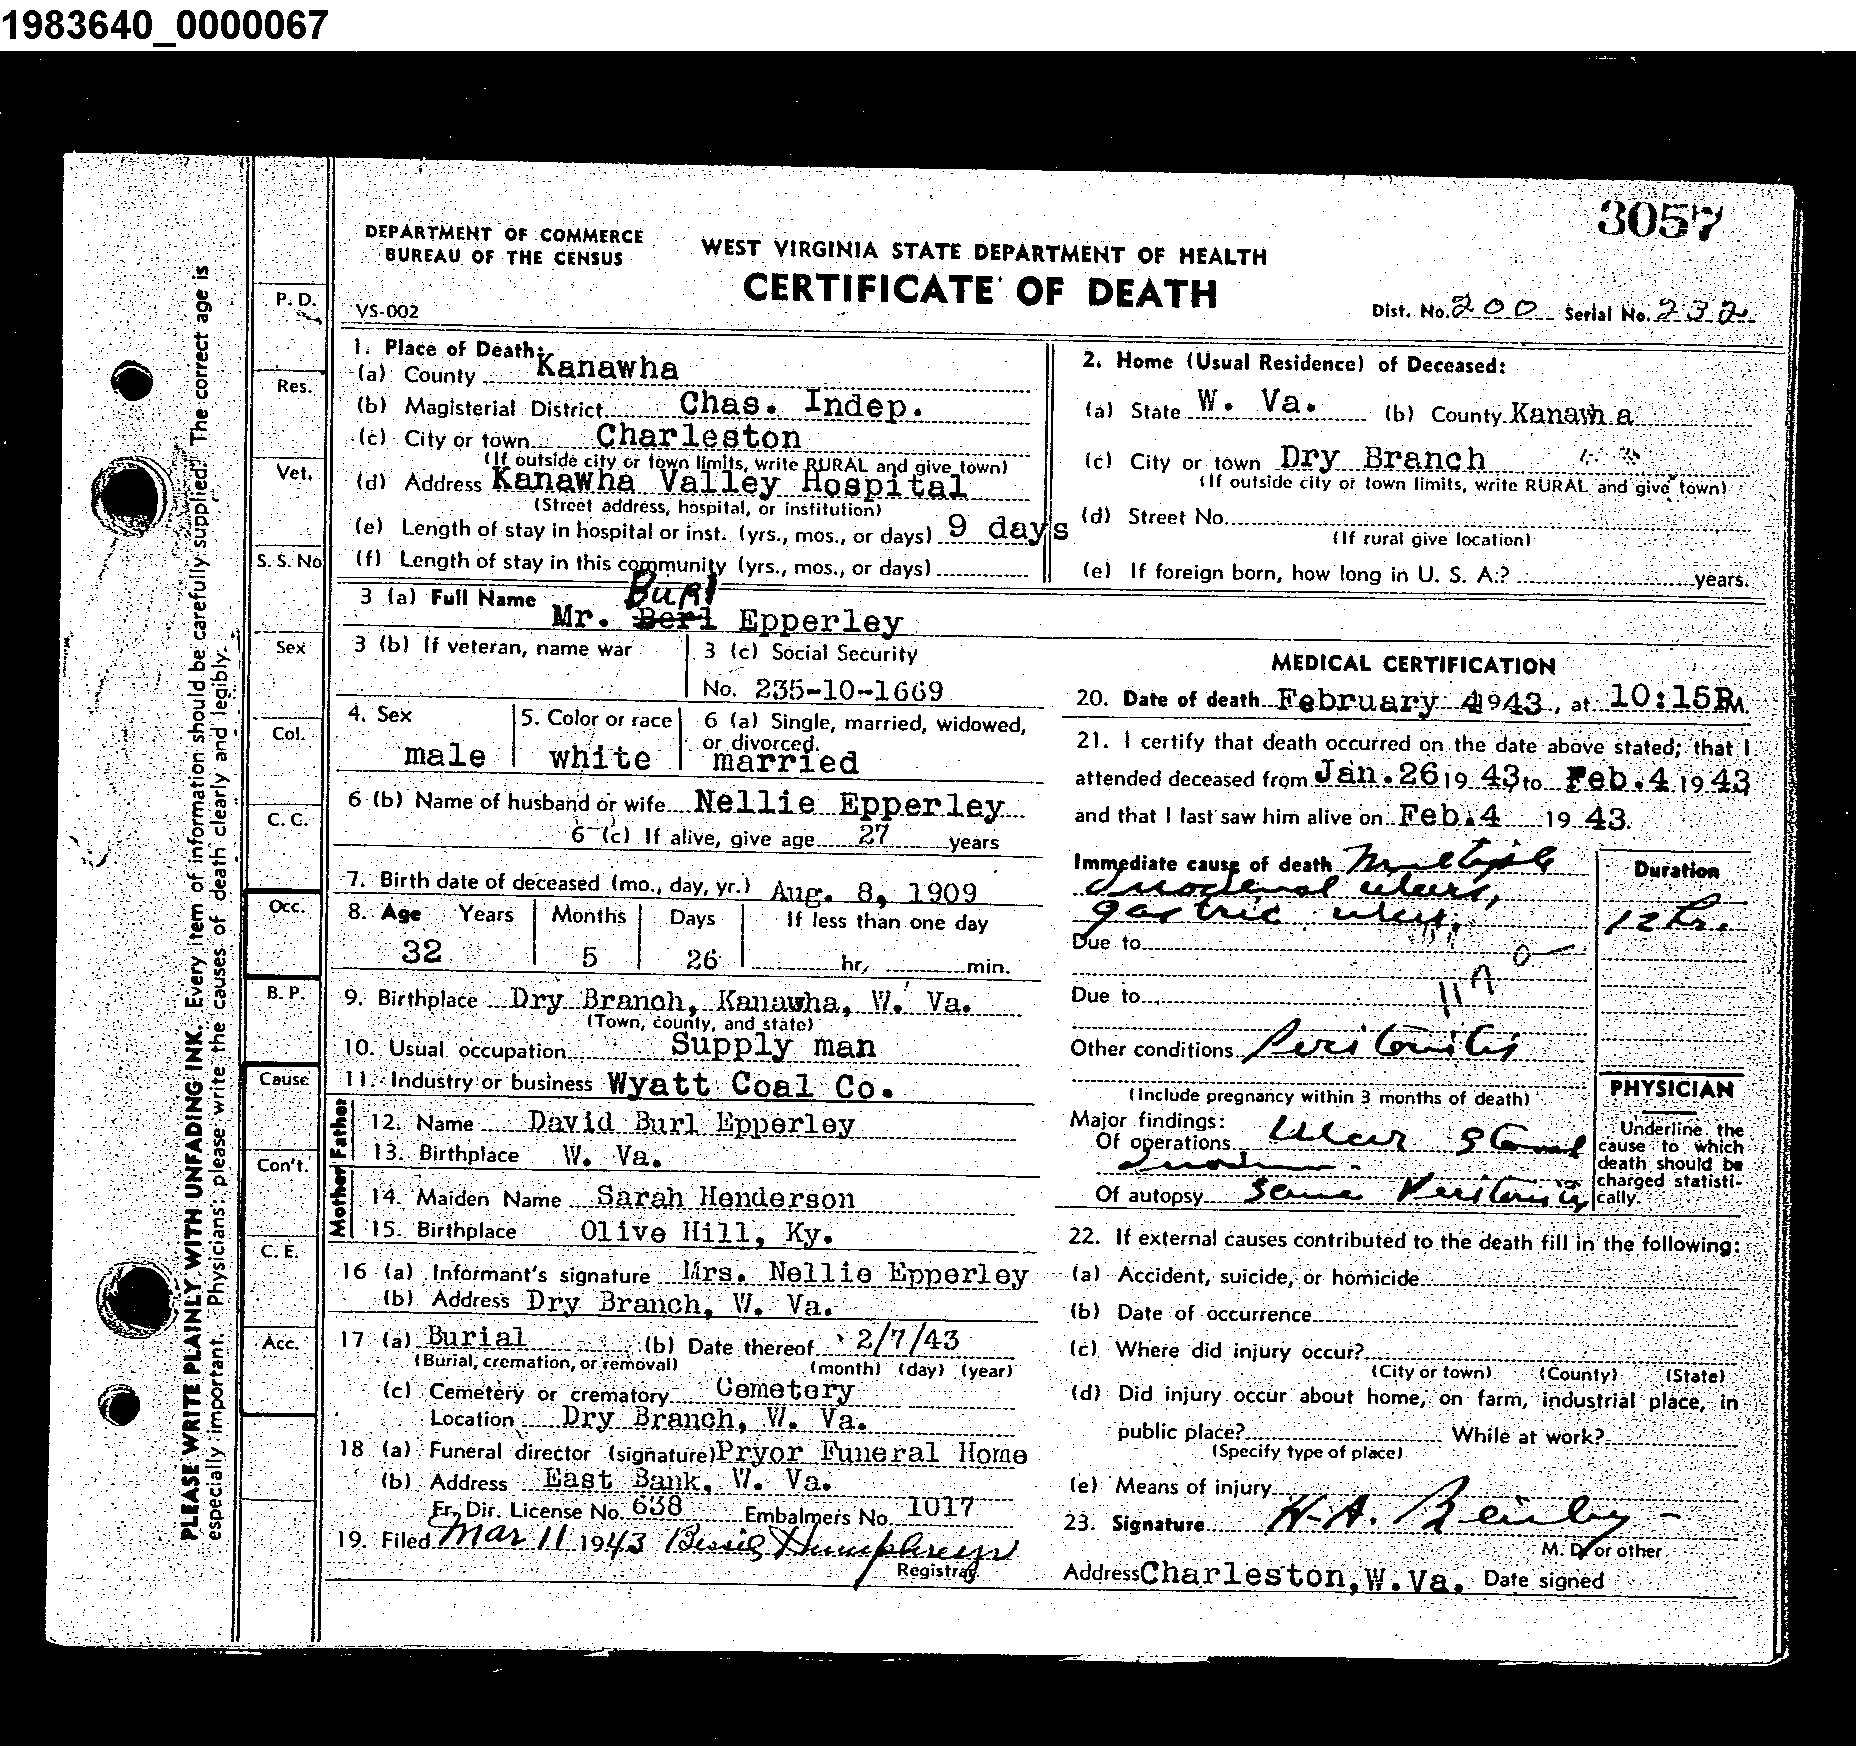 1983640_0000067
3057
DEPARTMENT OF COMMERCE
BUREAU OF THE CENSUS
WEST VIRGINIA STATE DEPARTMENT OF HEALTH
CERTIFICATE OF DEATH
VS-002
Dist. No. 200 Serial No. 232
PLEASE WRITE PLAINLY WITH UNFADING INK. Every item of information should be carefully supplied. The correct age is
especially important. Physicians: please write the causes of death clearly and legibly.
P. D.
Res.
Vet.
S. S. No
Sex
Col.
C. C.
Occ.
B. P.
Cause
Con't.
C. E.
Acc.
1. Place of Death:
(a) County Kanawha
(b) Magisterial District Chas. Indep.
(c) City or town Charleston
(If outside city or town limits, write RURAL and give town)
(d) Address Kanawha Valley Hospital
(Street address, hospital, or institution)
(e) Length of stay in hospital or inst. (yrs., mos., or days) 9 days
(f) Length of stay in this community (yrs., mos., or days)
2. Home (Usual Residence) of Deceased:
(a) State W. Va. (b) County Kanawha
(c) City or town Dry Branch
(If outside city or town limits, write RURAL and give town)
(d) Street No.
(If rural give location)
(e) If foreign born, how long in U. S. A.? years.
Burl
3 (a) Full Name Mr. Berl Epperley
3 (b) If veteran, name war
3 (c) Social Security
No. 235-10-1669
4. Sex male
5. Color or race white
6 (a) Single, married, widowed,
or divorced. married
6 (b) Name of husband or wife Nellie Epperley
6 (c) If alive, give age 27 years
7. Birth date of deceased (mo., day, yr.) Aug. 8, 1909
8. Age Years Months Days If less than one day
32 5 26 hr. min.
9. Birthplace Dry Branch, Kanawha, W. Va.
(Town, county, and state)
10. Usual occupation Supply man
11. Industry or business Wyatt Coal Co.
Father
12. Name David Burl Epperley
13. Birthplace W. Va.
Mother
14. Maiden Name Sarah Henderson
15. Birthplace Olive Hill, Ky.
16 (a) Informant's signature Mrs. Nellie Epperley
(b) Address Dry Branch, W. Va.
17 (a) Burial (b) Date thereof 2/7/43
(Burial, cremation, or removal) (month) (day) (year)
(c) Cemetery or crematory Cemetery
Location Dry Branch, W. Va.
18 (a) Funeral director (signature) Pryor Funeral Home
(b) Address East Bank, W. Va.
Fr. Dir. License No. 638 Embalmers No. 1017
19. Filed Mar 11 1943 Bessie Humphreys
Registrar
MEDICAL CERTIFICATION
20. Date of death February 4 1943, at 10:15P.M.
21. I certify that death occurred on the date above stated; that I
attended deceased from Jan. 26 19 43 to Feb. 4 19 43
and that I last saw him alive on Feb. 4 19 43.
Immediate cause of death Multiple
duodenal ulcers,
gastric ulcer.
Duration
12 hr.
Due to
Due to
Other conditions Peritonitis
(Include pregnancy within 3 months of death)
Major findings:
Of operations Ulcer
Of autopsy Same Peritonitis
PHYSICIAN
Underline the
cause to which
death should be
charged statisti-
cally.
22. If external causes contributed to the death fill in the following:
(a) Accident, suicide, or homicide
(b) Date of occurrence
(c) Where did injury occur?
(City or town) (County) (State)
(d) Did injury occur about home, on farm, industrial place, in
public place? While at work?
(Specify type of place)
(e) Means of injury
23. Signature H. A.
M. D. or other
Address Charleston, W. Va. Date signed